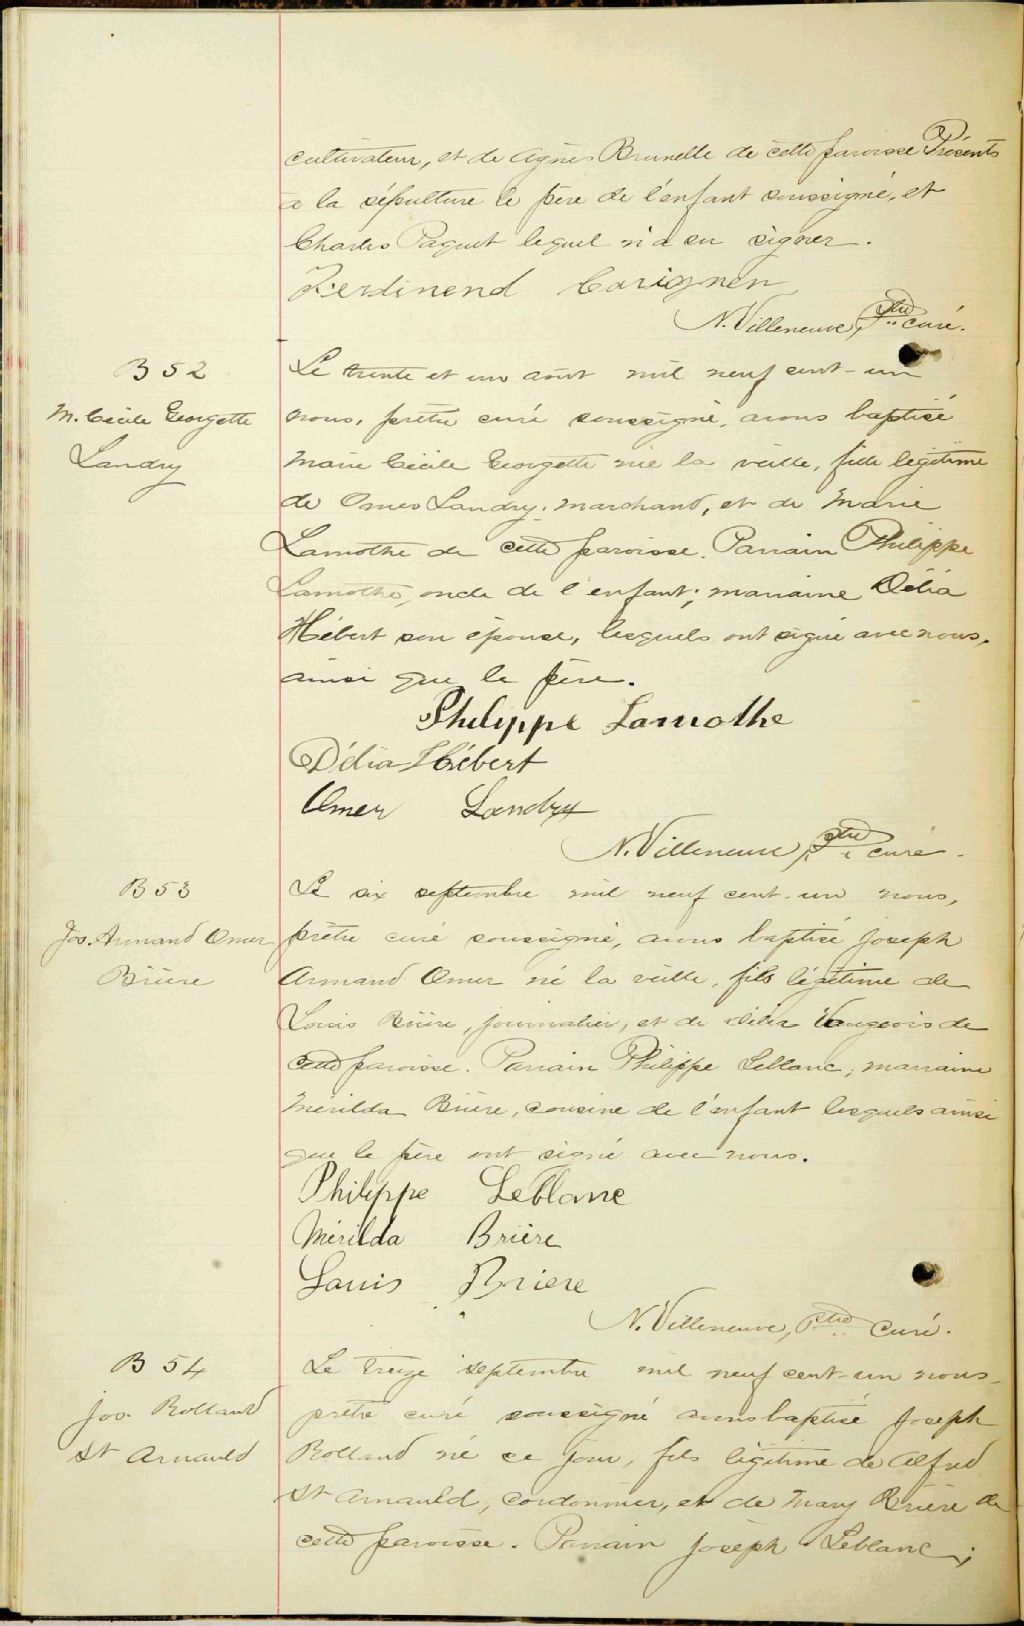 cultivateur, et de Agnès Brunelle de cette paroisse Présents
à la sépulture le père de l'enfant soussigné, et
Charles Paquet lequel n'a su signer.
Ferdinend Carignen
N. Villeneuve, Ptre curé.
B 52
M. Cécile Georgette
Landry
Le trente et un août mil neuf cent-un
nous, prêtre curé soussigné, avons baptisé
Marie Cécile Georgette née la veille, fille légitime
de Omer Landry, marchand, et de Marie
Lamothe de cette paroisse. Parrain Philippe
Lamothe, oncle de l'enfant; marraine Délia
Hébert son épouse, lesquels ont signé avec nous,
ainsi que le père.
Philippe Lamothe
Délia Hébert
Omer Landry
N. Villeneuve, Ptre curé.
B 53
Jos. Armand Omer
Brière
Le six septembre mil neuf cent-un nous,
prêtre curé soussigné, avons baptisé Joseph
Armand Omer né la veille, fils légitime de
Louis Brière, journalier, et de Délia Vaugeois de
cette paroisse. Parrain Philippe Leblanc; marraine
Mérilda Brière, cousine de l'enfant lesquels ainsi
que le père ont signé avec nous.
Philippe Leblanc
Mérilda Brière
Louis Briere
N. Villeneuve, Ptre curé.
B 54
Jos. Rolland
St Arnauld
Le treize septembre mil neuf cent-un nous
prêtre curé soussigné avons baptisé Joseph
Rolland né ce jour, fils légitime de Alfred
St Arnauld, cordonnier, et de Mary Brière de
cette paroisse. Parrain Joseph Leblanc;